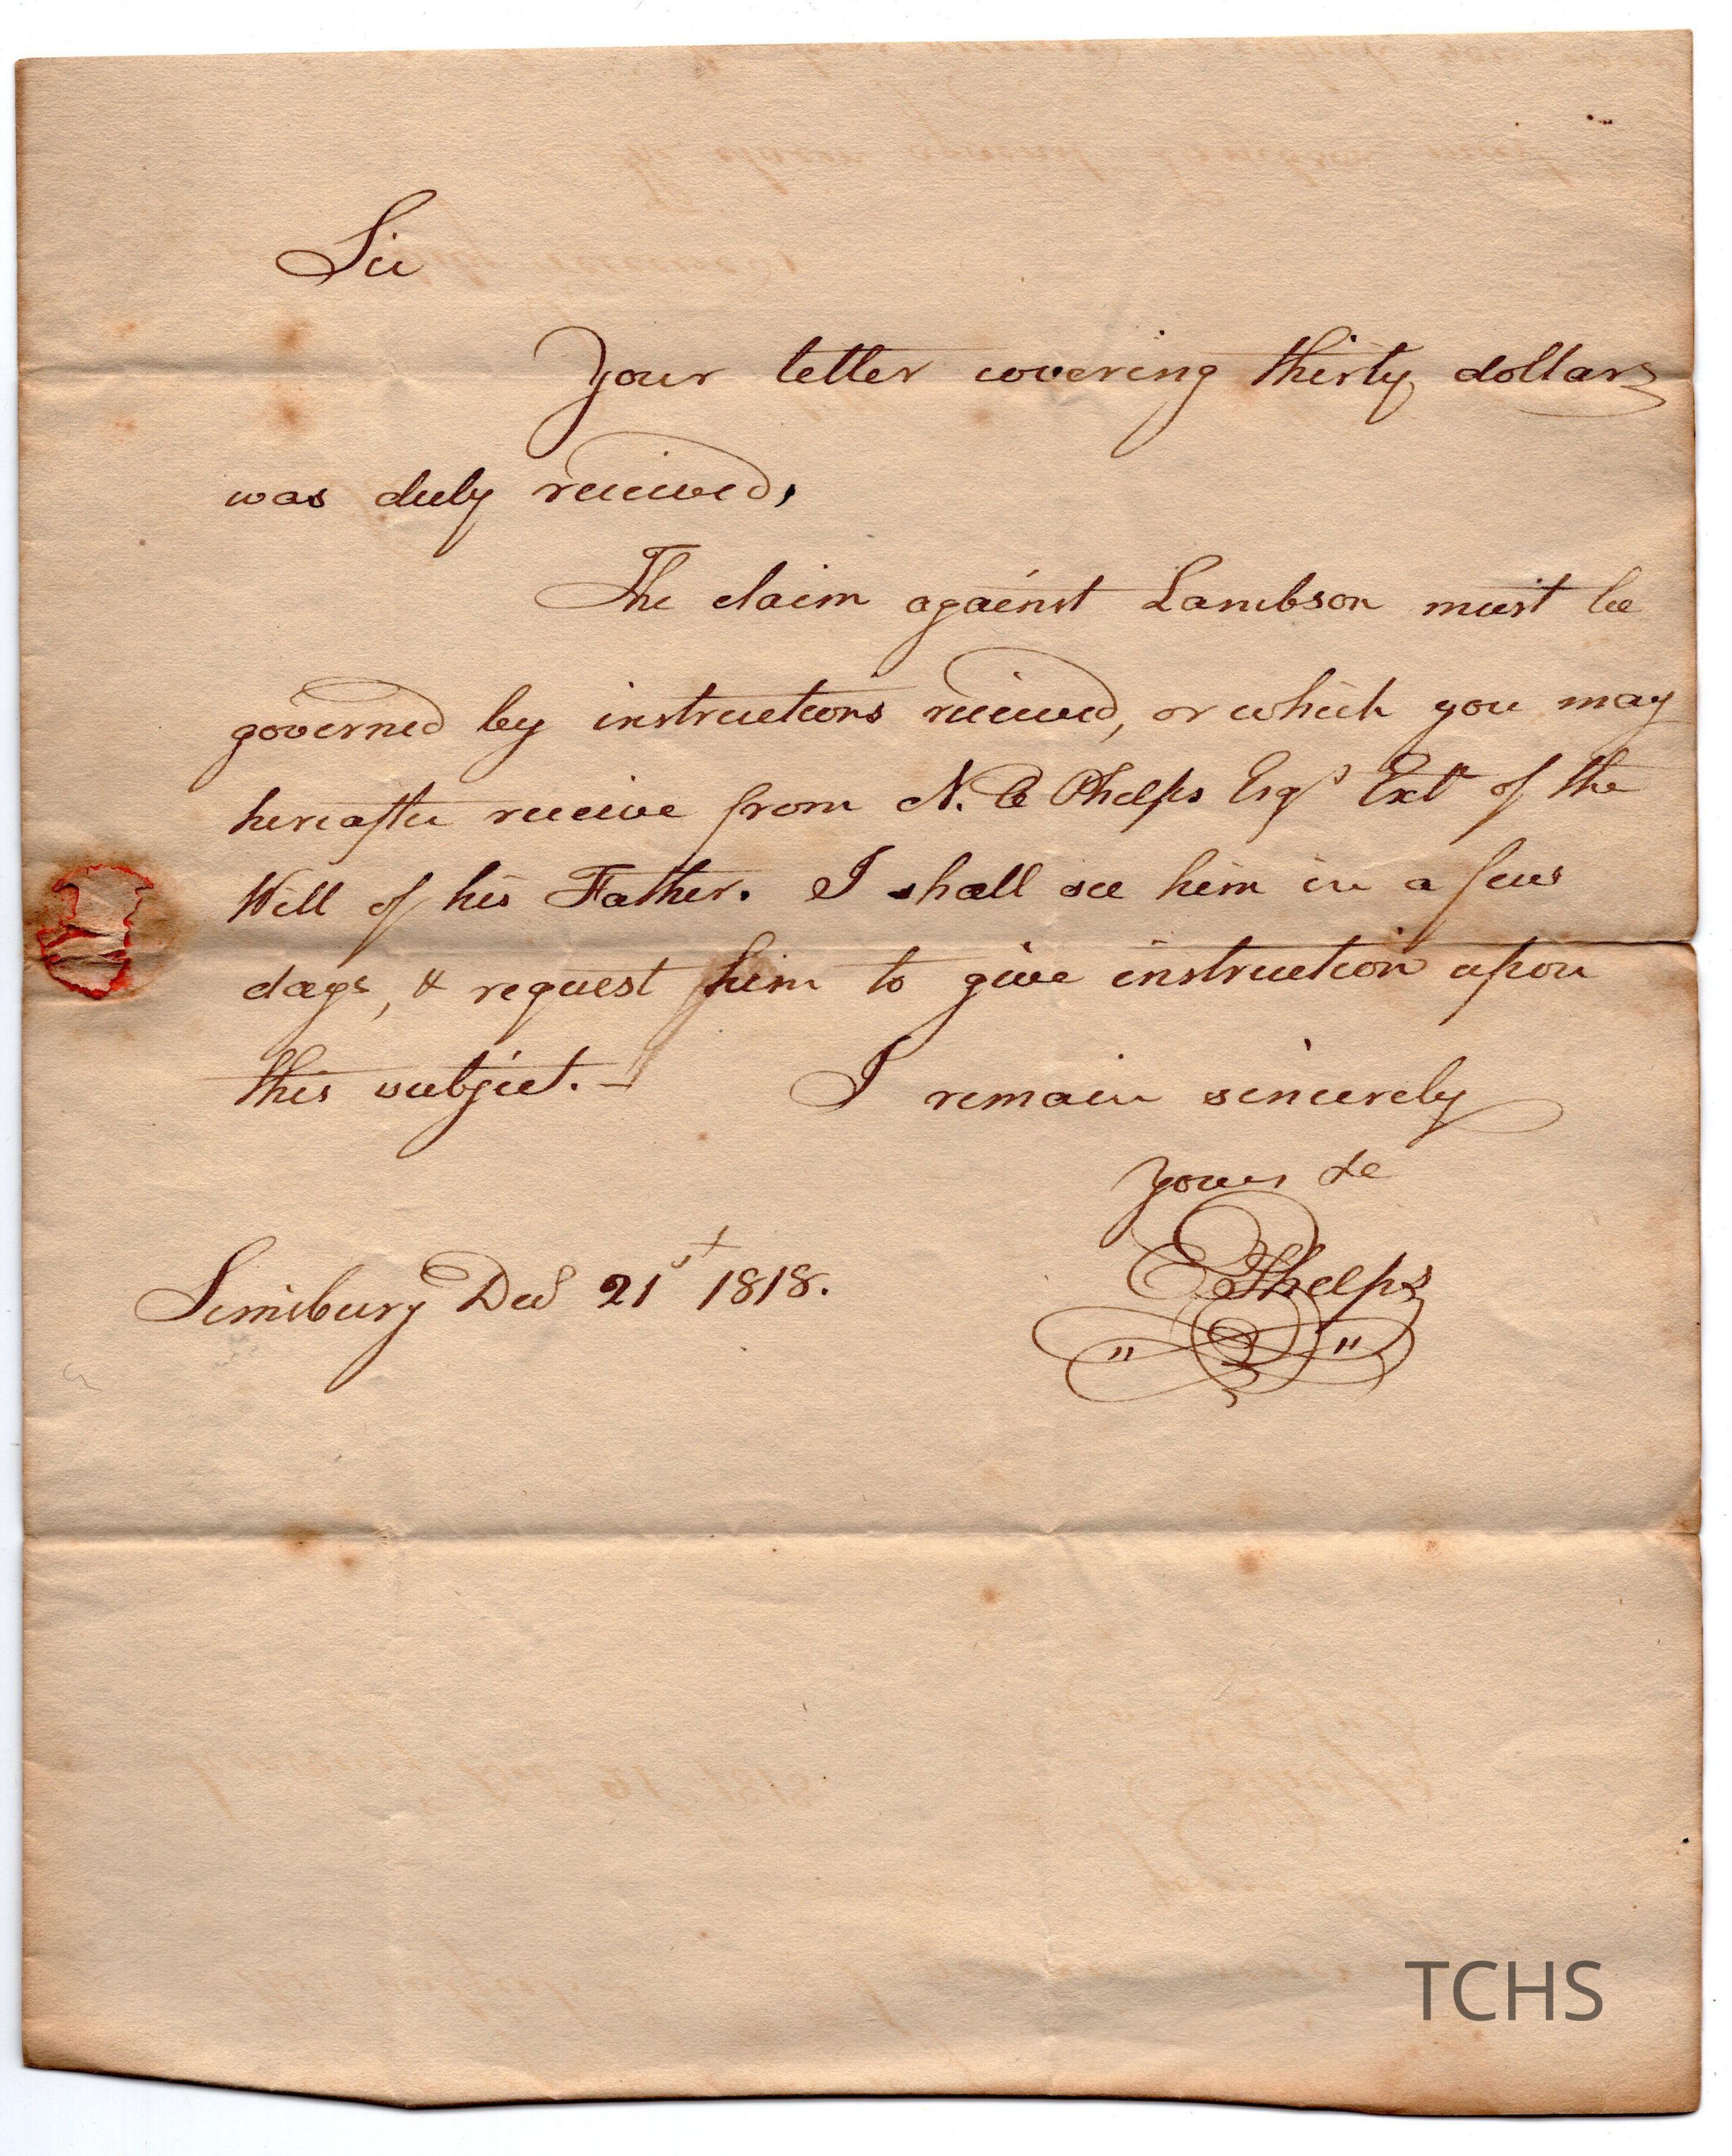 Sir
Your letter covering thirty dollars
was duly received,
The claim against Lambson must be
governed by instructions received, or which you may
hereafter receive from N. B Phelps Esqr Extr of the
Will of his Father. I shall see him in a few
days, & request him to give instruction upon
this subject. — I remain sincerely
yours &c
E Phelps
Simsbury Decr 21st 1818.
TCHS